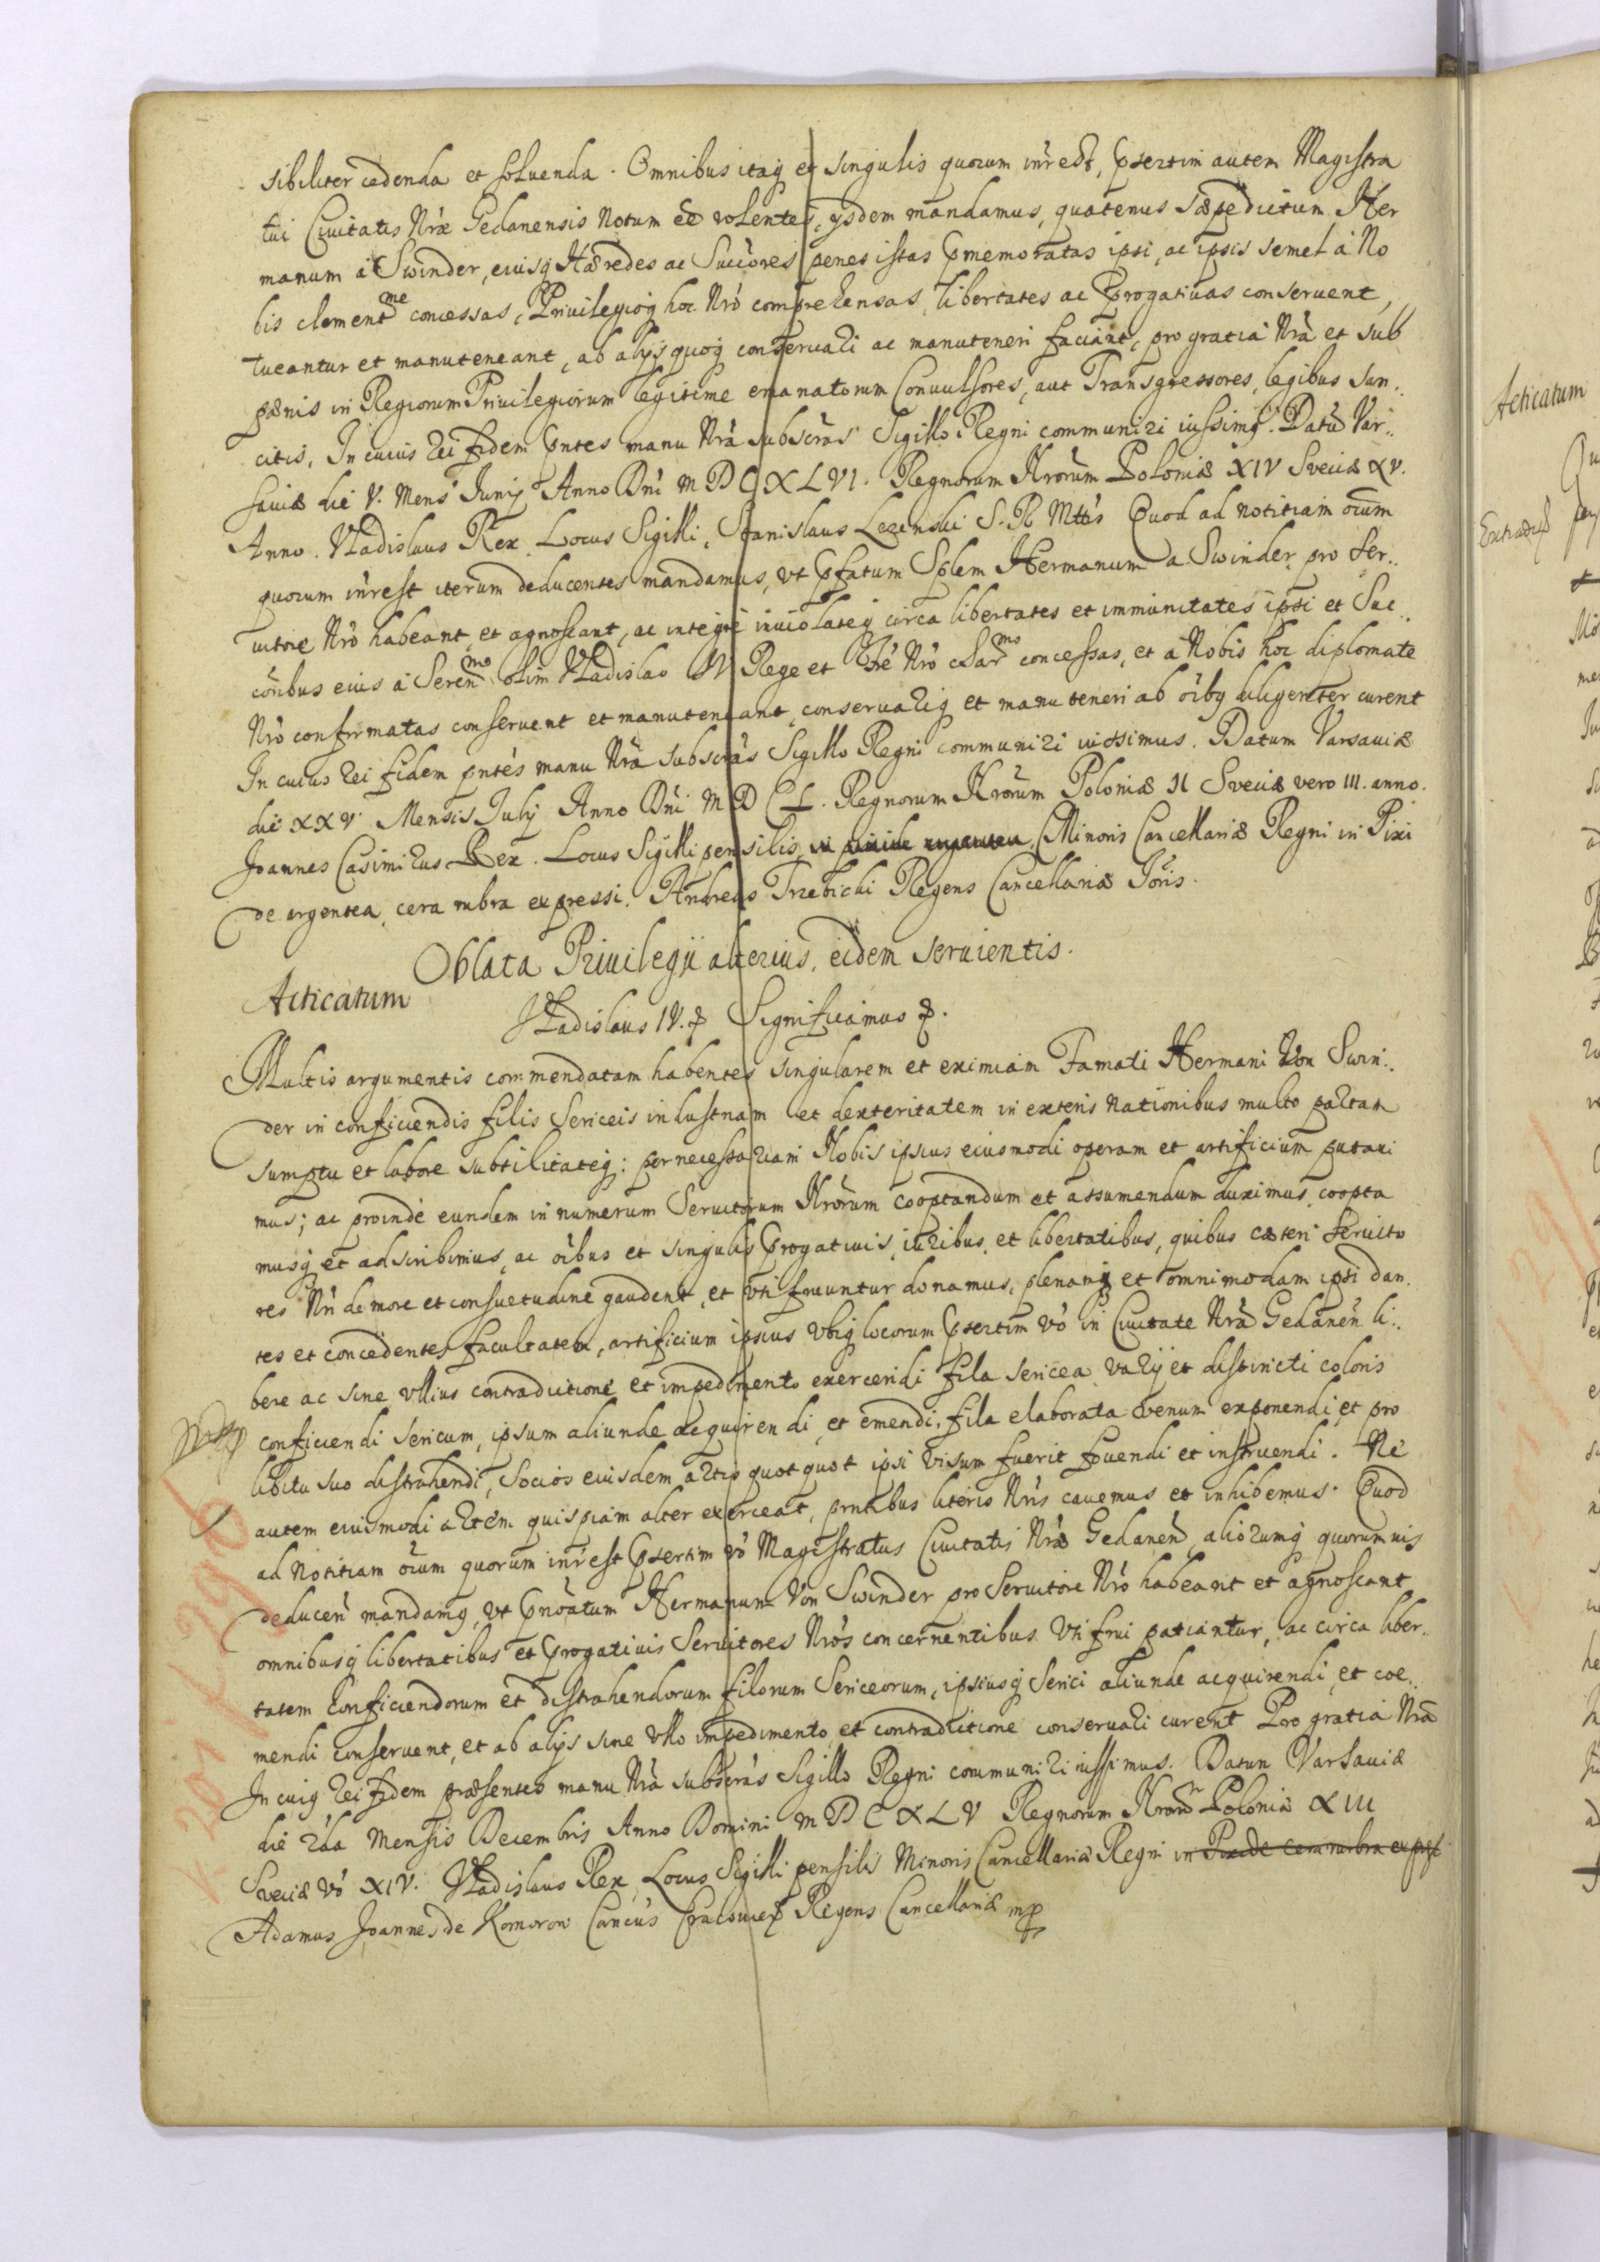 sibiliter cedenda et soluenda. Omnibus itaq et singulis quorum inrest, Psertim autem Magistra
tui Ciuitatis Nræ Gedanensis Notum eē volentes, ijsdem mandamus, quatenus sæpedictum Her
manum à Swinder, eiusq Hæredes ac Succores penes istas Pmemoratas ipsi, ac ipsis semel à No
bis clement^me concessas, Priuilegioq hoc Nrō comprehensas, libertates ac Progatiuas conseruent,
tueantur et manuteneant, ab alijs quoq conseruari ac manuteneri faciant, pro gratia Nrā et sub
pænis in Regiorum Priuilegiorum legitime emanatorum Conuulsores, aut Transgressores, legibus san..
citis. In cuius rei fidem Pntes manu Nrā subscras Sigillo Regni communiri iussimq. Datū Var..
sauiæ die V. Mens Junij Anno Dni MDCXLVI. Regnorum Nrorum Poloniæ XIV Sveciæ XV.
Anno. Vladislaus Rex. Locus Sigilli, Stanislaus Lezenski S. R. Mttis Quod ad notitiam oium
quorum inrest iterum deducentes mandamus, vt Pfatum Splem Hermanum a Swinder pro Ser..
uitore Nrō habeant, et agnoscant, ac integrè inuiolateq circa libertates et immunitates ipsi et Suc..
coribus eius à Seren^mo olim Vladislao IV Rege et Fré Nrō char^mo concessas, et à Nobis hoc diplomate
Nrō confirmatas conseruent et manuteneant, conseruariq et manuteneri ab oibq diligenter curent
In cuius rei fidem pntes manu Nrā subscras Sigillo Regni communiri iussimus. Datum Varsauiæ
die XXV Mensis Julij Anno Dni MDCL. Regnorum Nrorum Poloniæ II Sveciæ vero III. anno.
Joannes Casimirus Rex. Locus Sigilli pensilis Minoris Cancellariæ Regni in Pixi
de argentea, cera rubra expressi. Andreas Trzebicki Regens Cancellariæ Joris.
Oblata Priuilegij alterius, eidem seruientis.
Acticatum
Vladislaus IV. Significamus
Multis argumentis commendatam habentes singularem et eximiam Famati Hermani Von Swin..
der in conficiendis filis Sericeis industriam et dexteritatem in exteris Nationibus multo partam
sumptu et labore subtilitateq: pernecessariam Nobis ipsius eiusmodi operam et artificium putaui
mus; ac proinde eundem in numerum Seruitorum Nrorum cooptandum et assumendum duximus, coopta
musq et adscribimus, ac oibus et singulis Progatiuis, iuribus, et libertatibus, quibus cæteri Seruito
res Nri de more et consuetudine gaudent, et vti fruuntur donamus, plenamq et omnimodam ipsi dan
tes et concedentes facultatem, artificium ipsius vbiq locorum Psertim vō in Ciuitate Nrā Gedanen li..
bere ac sine vllius contradictione et impedimento exercendi fila sericea varij et distincti coloris
conficiendi sericum, ipsum aliunde acquirendi, et emendi, fila elaborata venum exponendi, et pro
libitu suo distrahendi, Socios eiusdem artis quotquot ipsi visum fuerit fouendi et instruendi. Ne
autem eiusmodi artem quispiam alter exerceat, pntibus literis Nris cauemus et inhibemus. Quod
ad Notitiam oium quorum inrest Psertim vō Magistratus Ciuitatis Nræ Gedanen, aliorumq quorumuis
deducen mandamq, vt Pnoatum Hermanum Von Swinder pro Seruitore Nrō habeant et agnoscant
omnibusq libertatibus et Progatiuis Seruitores Nros concernentibus vti frui patiantur, ac circa liber..
tatem conficiendorum et distrahendorum filorum Sericeorum, ipsiusq Serici aliunde acquirendi, et coe..
mendi conseruent, et ab alijs sine vllo impedimento et contradictione conseruari curent Pro gratia Nrā
In cuiq rei fidem præsentes manu Nrā subscras Sigillo Regni communiri iussimus. Datum Varsauiæ
die 2da Mensis Decembris Anno Domini MDCXLV Regnorum Nrorum Poloniæ XIII
Sveciæ vō XIV. Vladislaus Rex, Locus Sigilli pensilis Minoris Cancellariæ Regni in Pixide cera rubra expressi
Adamus Joannes de Komorow Cancus Cracouien Regens Cancellariæ mp
Acticatum